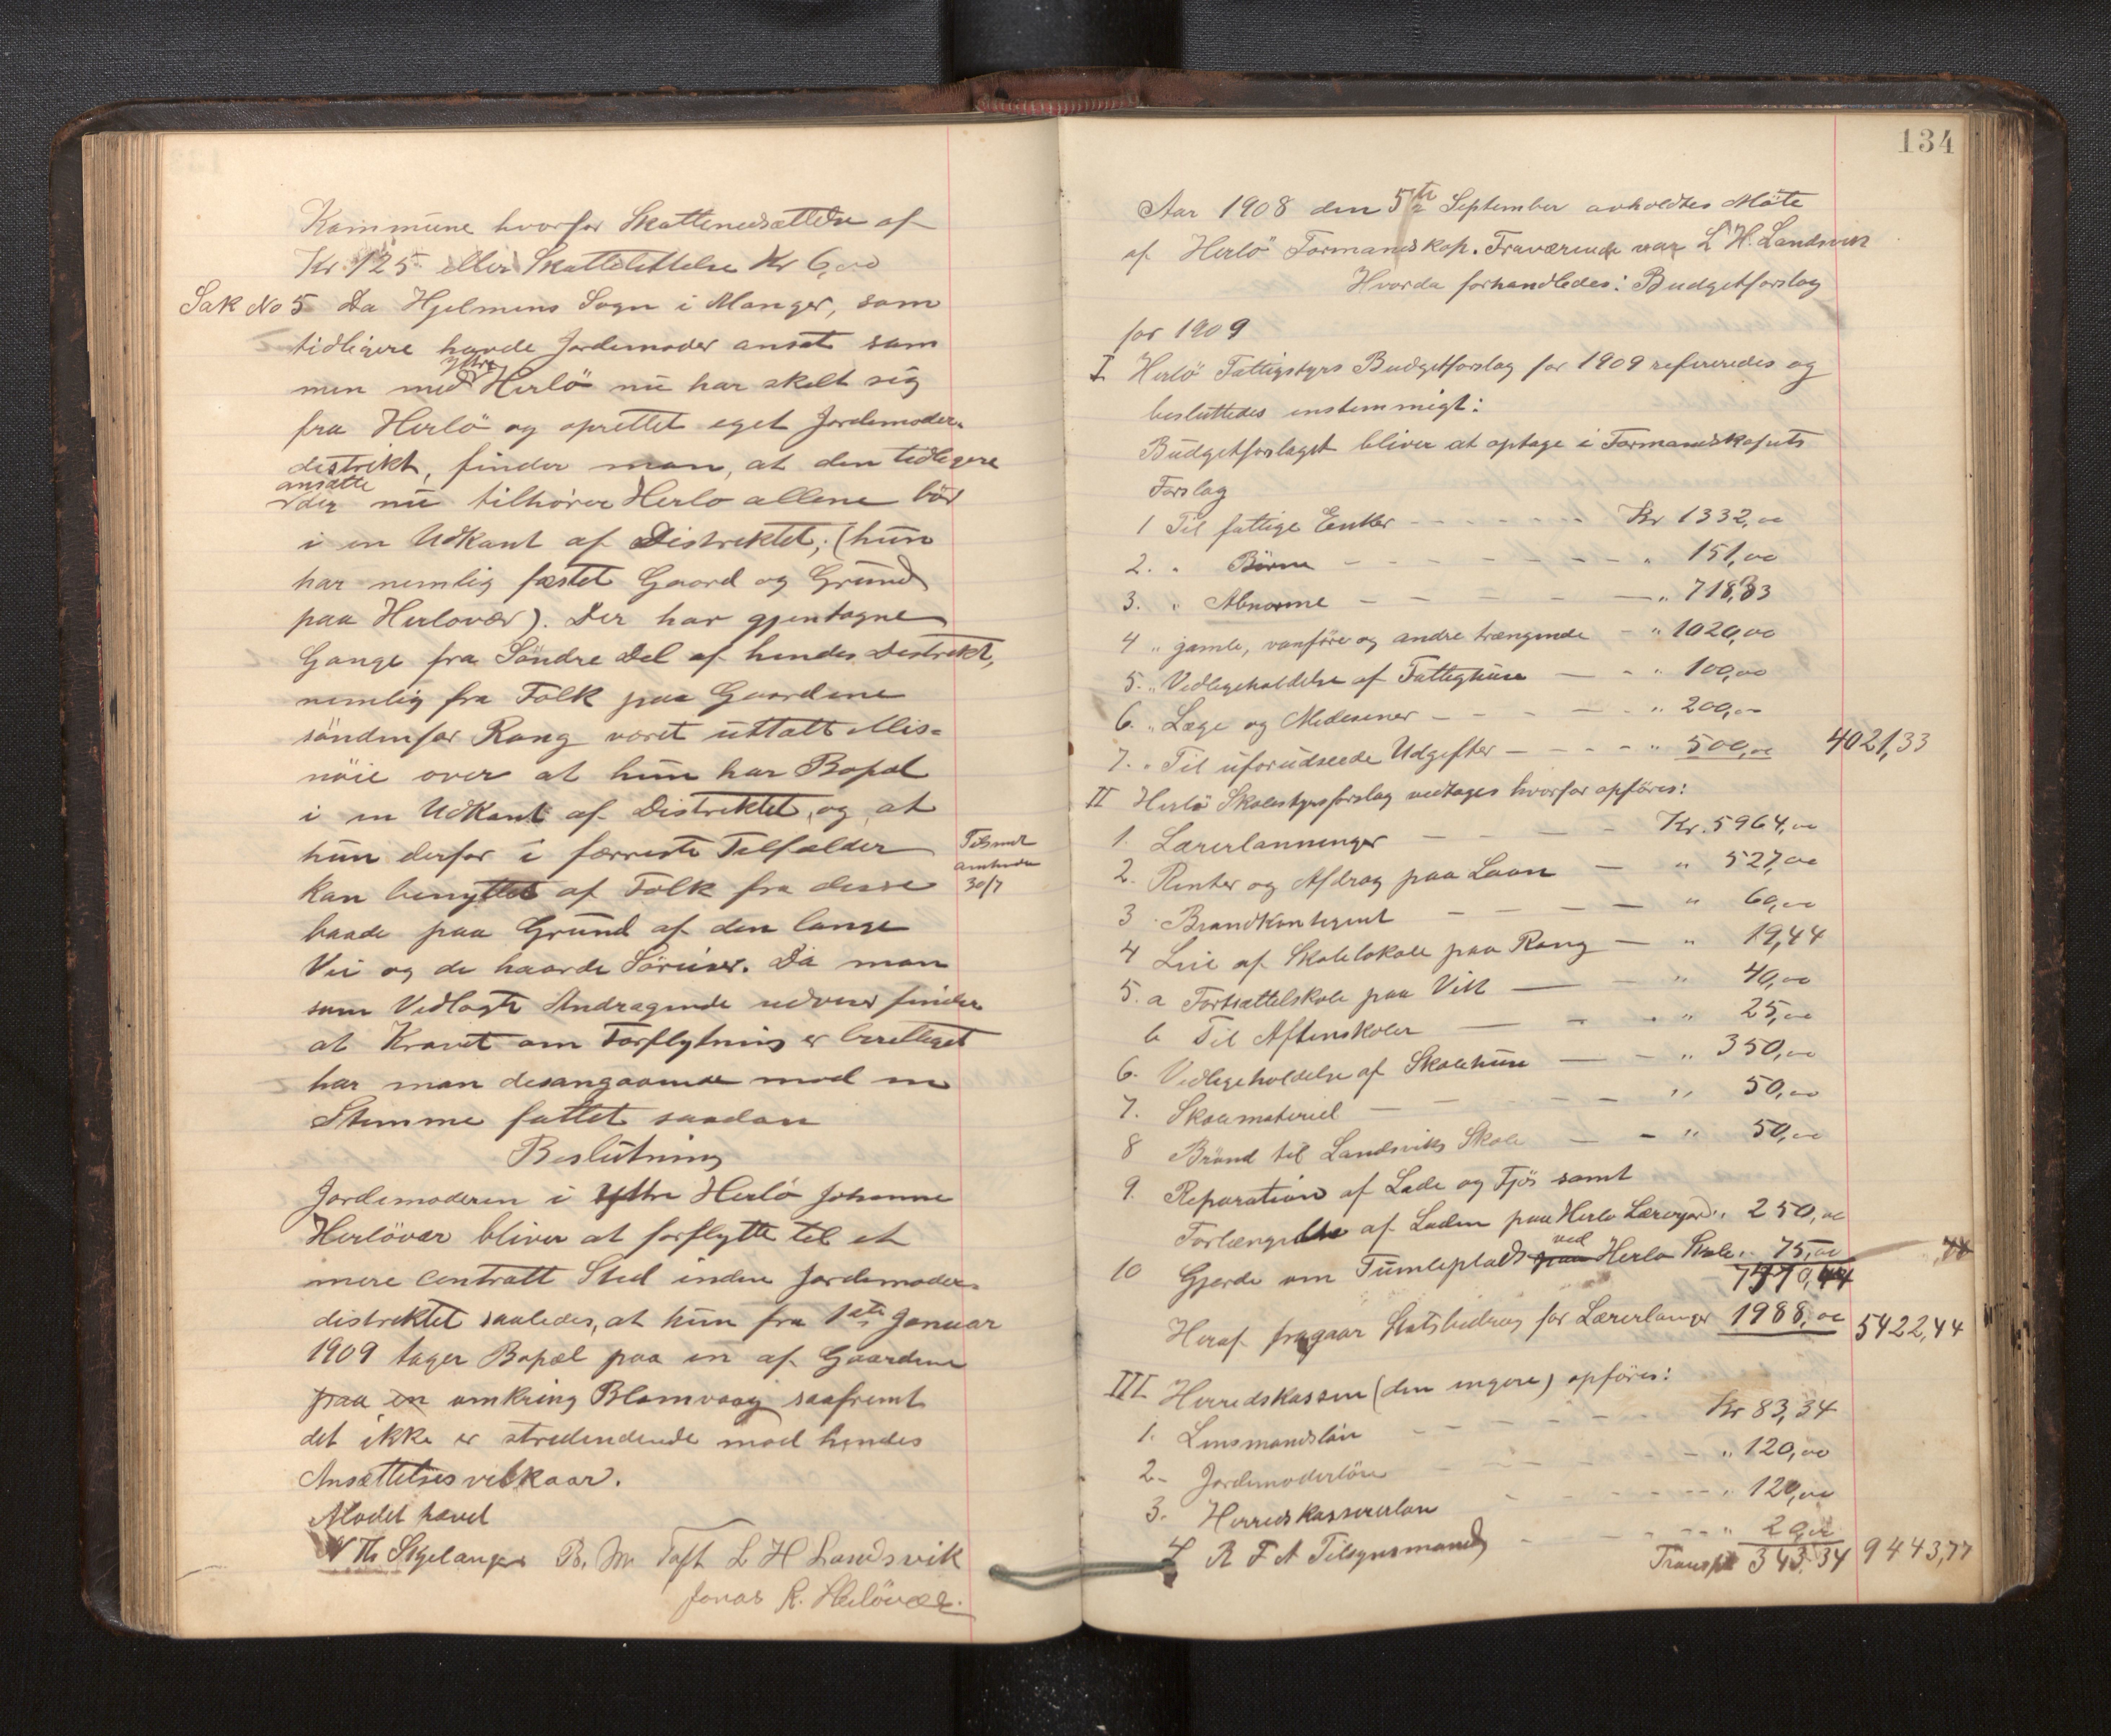 Kommune hvorfor Skattenedsættelse af
Kr. 125 eller Skattelettelse Kr 6,00
Sak No 5 Da Hjelmens Sogn i Manger, som
tidligere havde Jordemoder ansat sam
men med ytre Herlö nu har skelt sig
fra Herlö og oprettet eget Jordemoder-
distrikt, finder man, at den tidligere
ansatte
der nu tilhörer Herlo allene bör
i en Udkant af Distriktet; (hun
har nemlig fæstet Gaard og Grund
paa Herlovær). Der har gjentagne
Gange fra Söndre Del af hendes Distrikt,
nemlig fra Folk paa Gaardene
söndenfor Rong været uttalt Mis-
nöie over at hun har Bopæl
i en Udkant af Distriktet, og at
hun derfor i færreste Tilfælder
kan benyttes af Folk fra disse
baade paa Grund af den lange
Vei og de haarde Söreiser. Da man
som Vedlagte Andragende udviser finder
at Kravet om Forflytning er berettiget
har man desangaaende mod en
Stemme fattet saadan
Beslutning
Jordemoderen i yttre Herlö Johanne
Herlövær bliver at forflytte til et
mere centralt Sted inden Jordemoder-
distriktet saaledes, at hun fra 1ste Januar
1909 tager Bopæl paa en af Gaardene
paa en omkring Blomvaag saafremt
det ikke er stridendende mod hendes
Ansættelsesvilkaar.
Mödet hævet
N Th Skjelanger B. M Toft L H Landsvik
Jonas R. Herlövær.
Tilsendt
amtmden
30/7
134
Aar 1908 den 5te September avholdtes Möte
af Herlö Formandskap. Fraværende var L H. Landsvik
Hvorda forhandledes: Budgetforslag
for 1909
I Herlö Fattigstyrs Budgetforslag for 1909 refereredes og
besluttedes enstemmigt:
Budgetforslaget bliver at optage i Formandskapets
Forslag
1 Til fattige Enker - - - - - Kr 1332,00
2. " Börne - - - - - - " 151,00
3. " Abnorme - - - - - " 718,33
4 " gamle, vanföre og andre trængende - " 1020,00
5. " Vedligeholdelse af Fattighuse - - " 100,00
6. " Læge og Medesiner - - - - " 200,00
7. " Til uforudseede Udgifter - - - - " 500,00 4021,33
II Herlö Skolestyrsforslag vedtages hvorfor opföres:
1. Lærerlönninger - - - - - Kr. 5964,00
2. Renter og Afdrag paa Laan - " 527,00
3 Brandkontigent - - - - - " 60,00
4 Leie af Skolelokale paa Rong - " 19,44
5. a Fortsættelskole paa Vik - - " 40,00
b Til Aftenskoler - - - " 25,00
6. Vedligeholdelse af Skolehuse - - " 350,00
7. Skolemateriel - - - - - " 50,00
8 Brönd til Landsviks Skole - - " 50,00
9. Reparation af Lade og Fjös samt
Forlængelse af Laden paa Herlo Lærergard " 250,00
10 Gjerde om Tumleplads paa ved Herlo Skole " 75,00
7410,44
Heraf fragaar Statsbidrag for Lærerlønger 1988,00 5422,44
III Herredskassen (den engere) opföres:
1. Lensmandslön - - - - - Kr 83,34
2- Jordemoderlön - - - - - " 120,00
3. Herredskassererlön - - - - - " 120,00
4 R F A Tilsynsmand - - - - - " 20,00
Transpt 343,34 9443,77